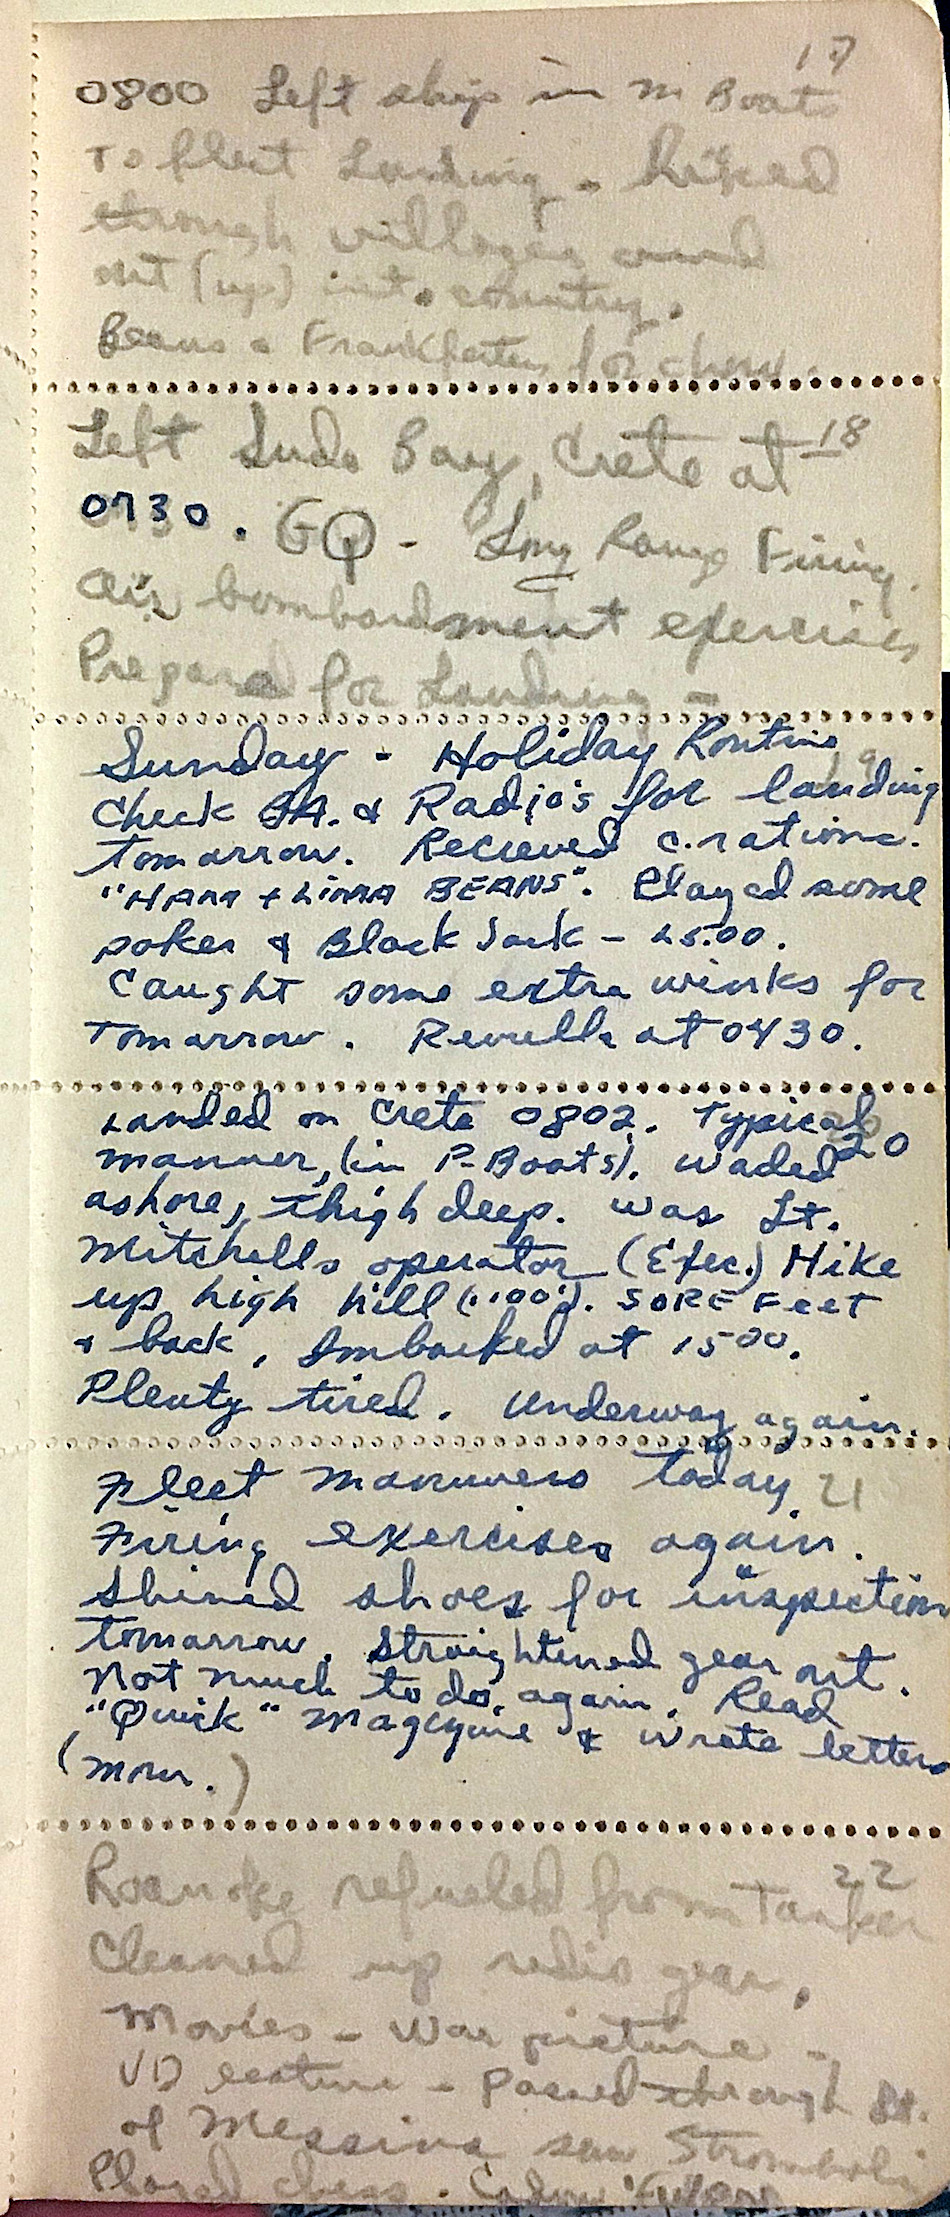 17
0800 Left ship in m Boats
To fleet Landing. Hiked
through villages and
out (up) into country.
Beans & Frankfurters for chow.
Left Suda Bay, Crete at 18
0730. GQ - Long Range Firing.
Air bombardment exercises
Prepared for Landing -
Sunday - Holiday Routine 19
Check BA. & Radio's for landing
tomorrow. Recieved c.rations.
"HAM + LIMA BEANS". Played some
poker & Black Jack - 25.00.
Caught some extra winks for
Tomorrow. Reveille at 0430.
Landed on Crete 0802. Typical
manner, (in P-Boats). Waded 20
ashore, thigh deep. Was Lt.
Mitchells operator (Exec.) Hike
up high hill. SORE Feet
& back, Imbarked at 1500.
Plenty tired. Underway again.
Fleet manuvers today 21
Firing exercises again.
Shined shoes for inspection
tomorrow. Straightened gear out.
Not much to do, again. Read
"Quick" magizine & wrote letters
(mom.)
22
Roanoke refueled from Tanker
Cleaned up radio gear.
Movies - War picture -
VD lecture - Passed through St.
of Messina saw Stromboli
Played chess.